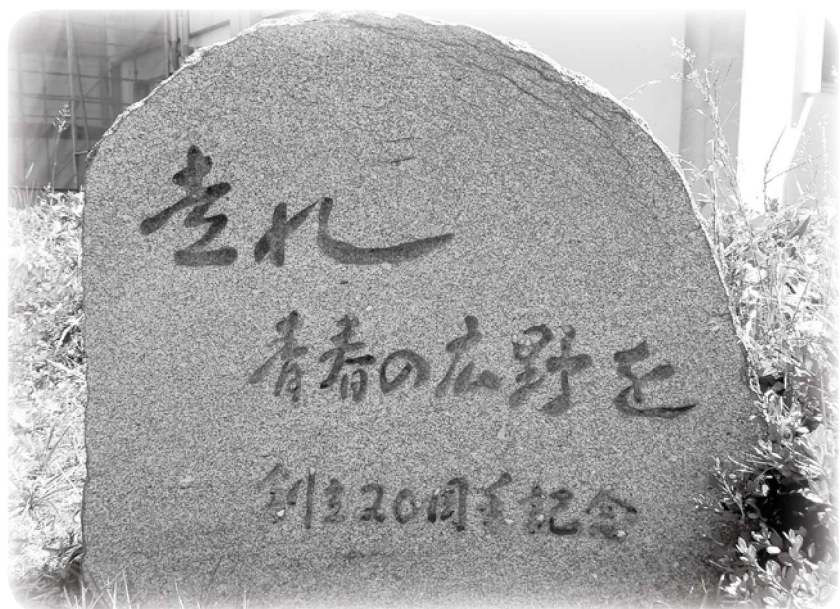 走れ
青春の広野を
創立20周年記念